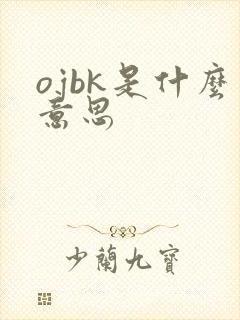 ojbk是什麼
意思
少蘭九寶